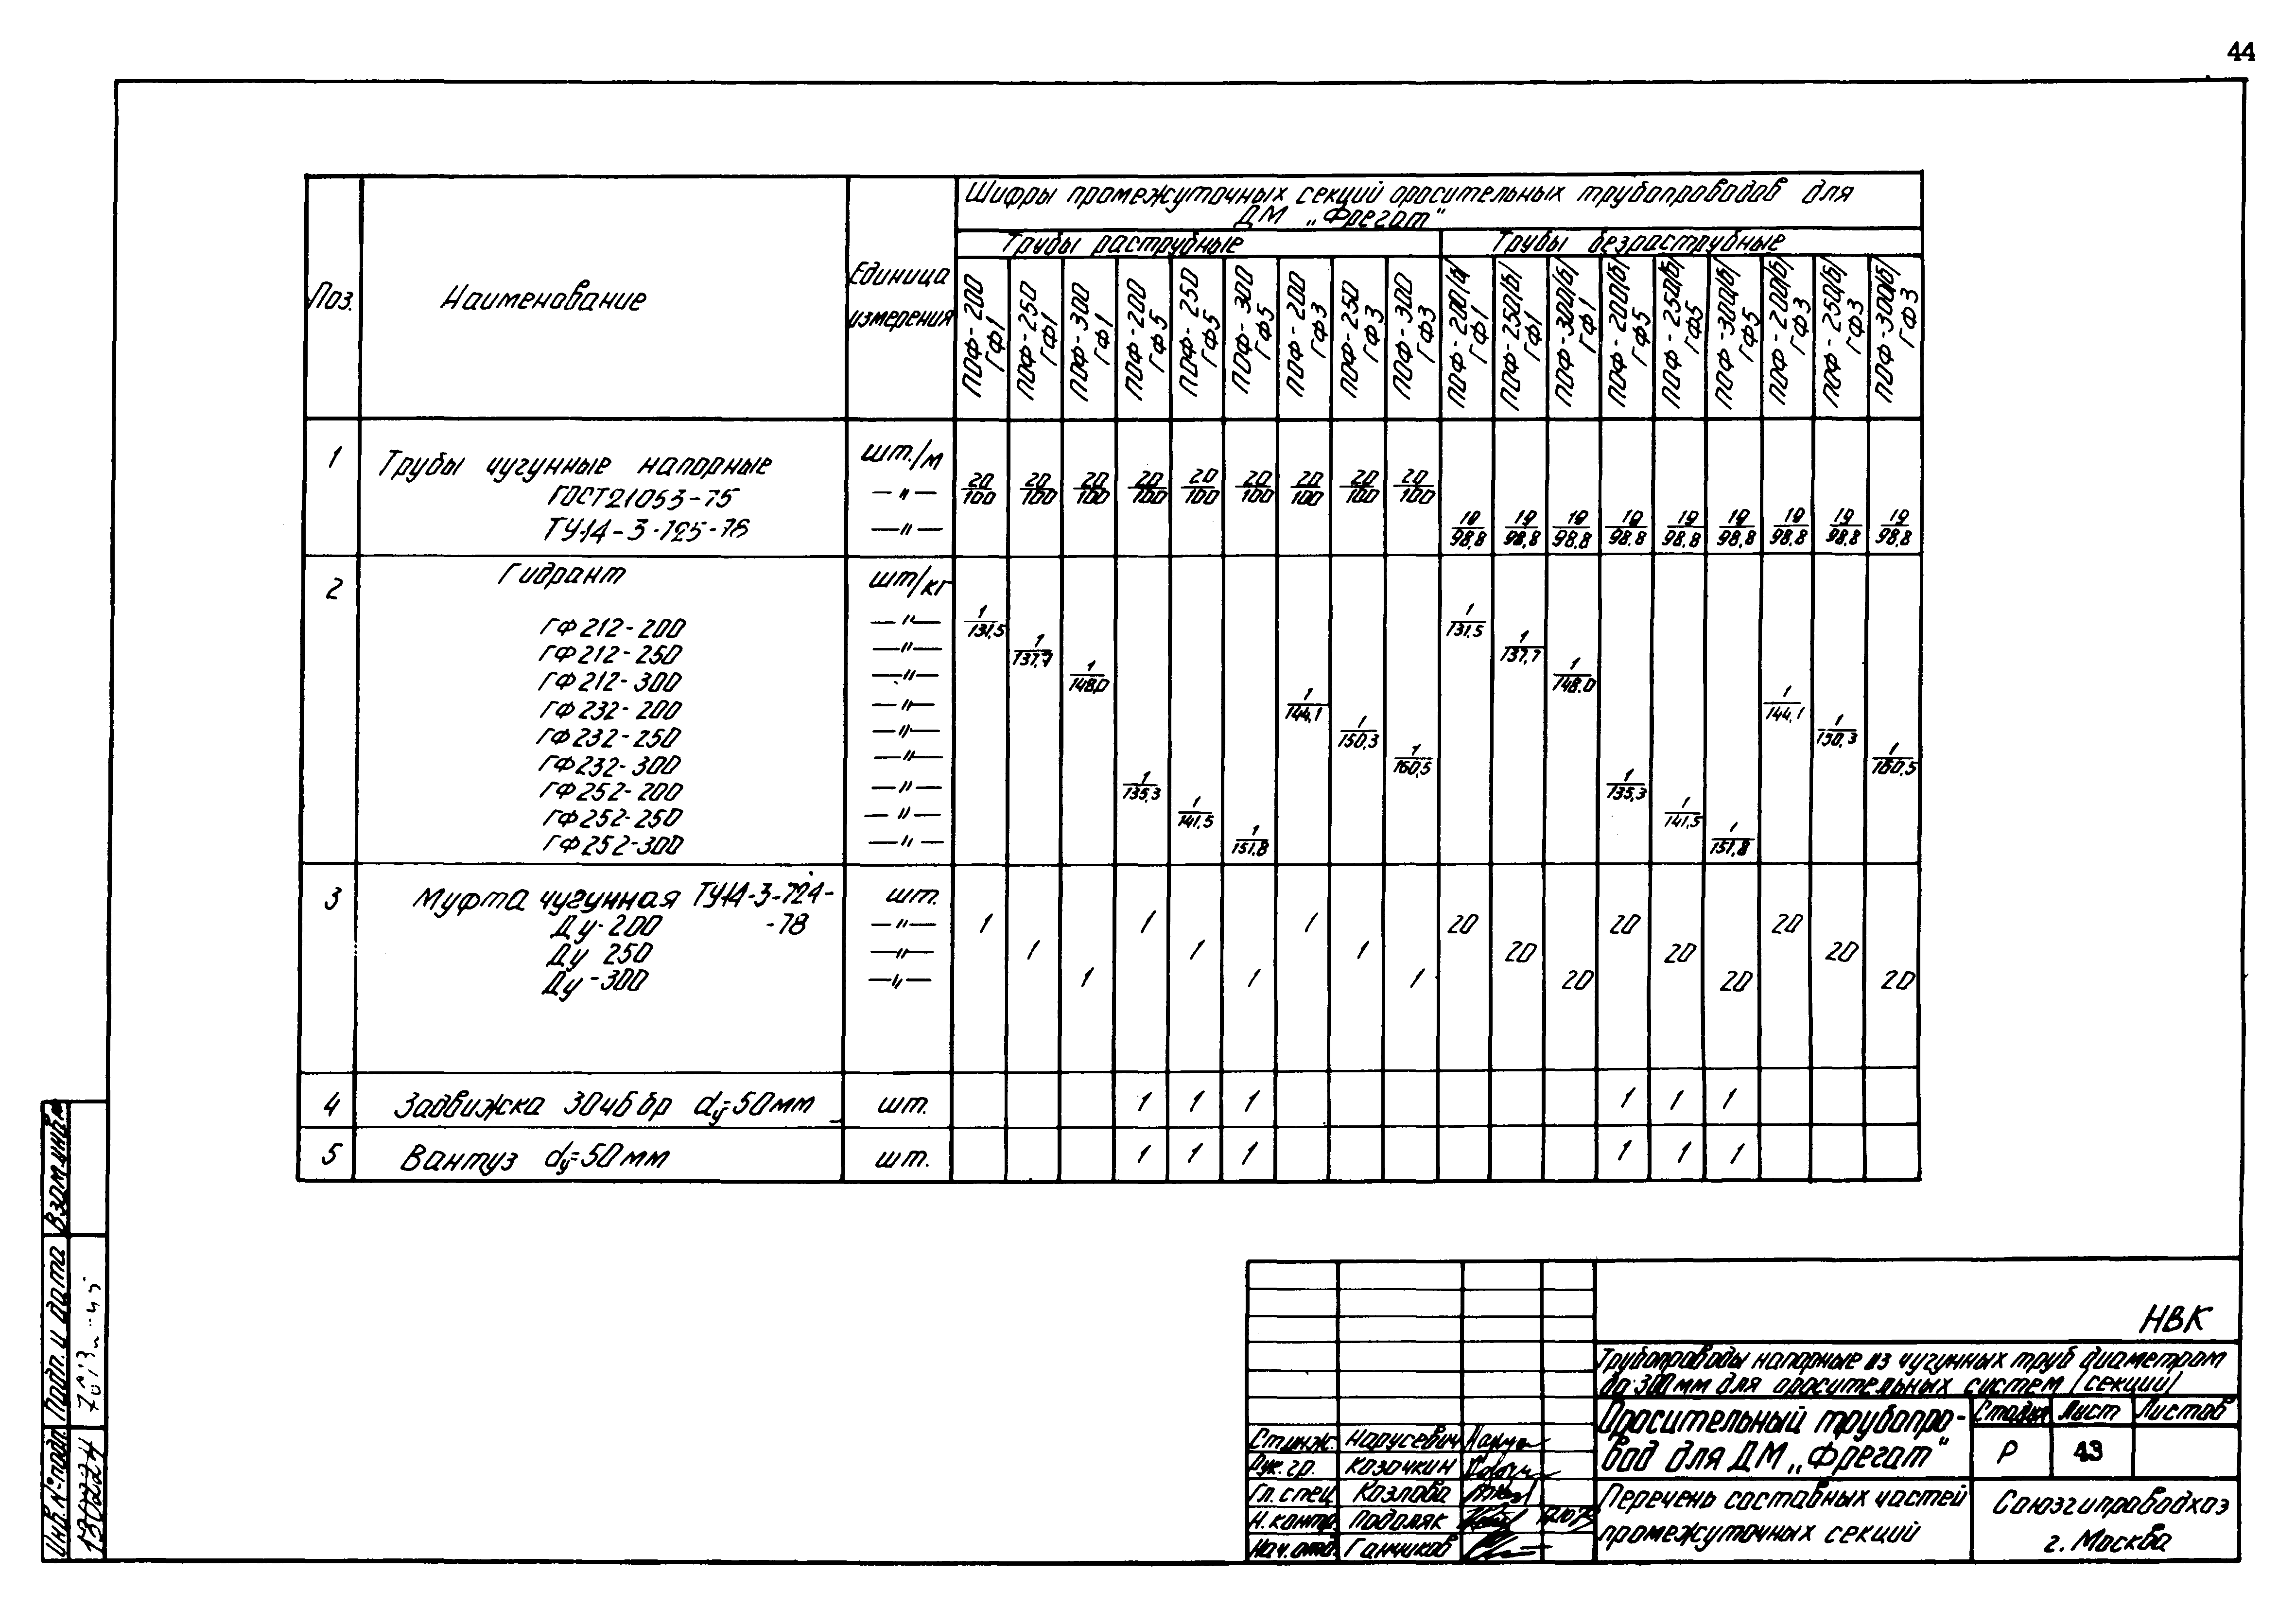 44
Шифры промежуточных секций оросительных трубопроводов для
ДМ „Фрегат"
Трубы раструбные Трубы безраструбные
Поз. Наименование Единица измерения
ПОФ-200 ГФ1
ПОФ-250 ГФ1
ПОФ-300 ГФ1
ПОФ-200 ГФ5
ПОФ-250 ГФ5
ПОФ-300 ГФ5
ПОФ-200 ГФ3
ПОФ-250 ГФ3
ПОФ-300 ГФ3
ПОФ-200/б/ ГФ1
ПОФ-250/б/ ГФ1
ПОФ-300/б/ ГФ1
ПОФ-200/б/ ГФ5
ПОФ-250/б/ ГФ5
ПОФ-300/б/ ГФ5
ПОФ-200/б/ ГФ3
ПОФ-250/б/ ГФ3
ПОФ-300/б/ ГФ3
1 Трубы чугунные напорные шт./м
ГОСТ21053-75 —"— 20/100 20/100 20/100 20/100 20/100 20/100 20/100 20/100 20/100
ТУ14-3-725-78 —"— 19/98,8 19/98,8 19/98,8 19/98,8 19/98,8 19/98,8 19/98,8 19/98,8 19/98,8
2 Гидрант шт/кг
ГФ212-200 —"— 1/131,5 1/131,5
ГФ212-250 —"— 1/137,7 1/137,7
ГФ212-300 —"— 1/148,0 1/148,0
ГФ232-200 —"— 1/144,1 1/144,1
ГФ232-250 —"— 1/150,3 1/150,3
ГФ232-300 —"— 1/160,5 1/160,5
ГФ252-200 —"— 1/135,3 1/135,3
ГФ252-250 —"— 1/141,5 1/141,5
ГФ252-300 —"— 1/151,8 1/151,8
3 Муфта чугунная ТУ14-3-724- шт.
Ду-200 -78 —"— 1 1 1 20 20 20
Ду 250 —"— 1 1 1 20 20 20
Ду-300 —"— 1 1 1 20 20 20
4 Задвижка 30ч6бр dу=50мм шт. 1 1 1 1 1 1
5 Вантуз dу=50мм шт. 1 1 1 1 1 1
Взам.инв.№
Подп. и дата
Инв.№подл.
НВК
Трубопроводы напорные из чугунных труб диаметром
до 300 мм для оросительных систем /секции/
Оросительный трубопро-
вод для ДМ „Фрегат"
Стадия Лист Листов
Р 43
Перечень составных частей
промежуточных секций
Союзгипроводхоз
г. Москва
Ст.инж. Нарусевич
Рук.гр. Козочкин
Гл.спец Козлова
Н.контр. Подомяк
Нач.отд. Ганчиков